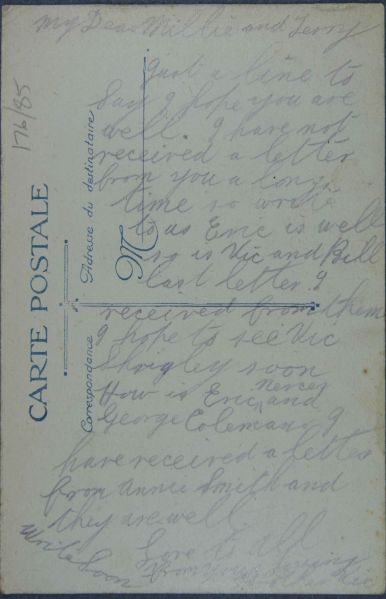 My Dear Millie and Terry
Just a line to
say I hope you are
well. I have not
received a letter
from you a long
time so write
to as Eric is well
so is Vic and Bill
last letter I
received from them
I hope to see Vic
Shrigley soon
How is Eric Mercer and
George Coleman I
have received a letter
from Annie Smith and
they are well
Love to All
From your loving
Brother Vic
Write Soon
176/85
CARTE POSTALE
Correspondance
Adresse du destinataire
M